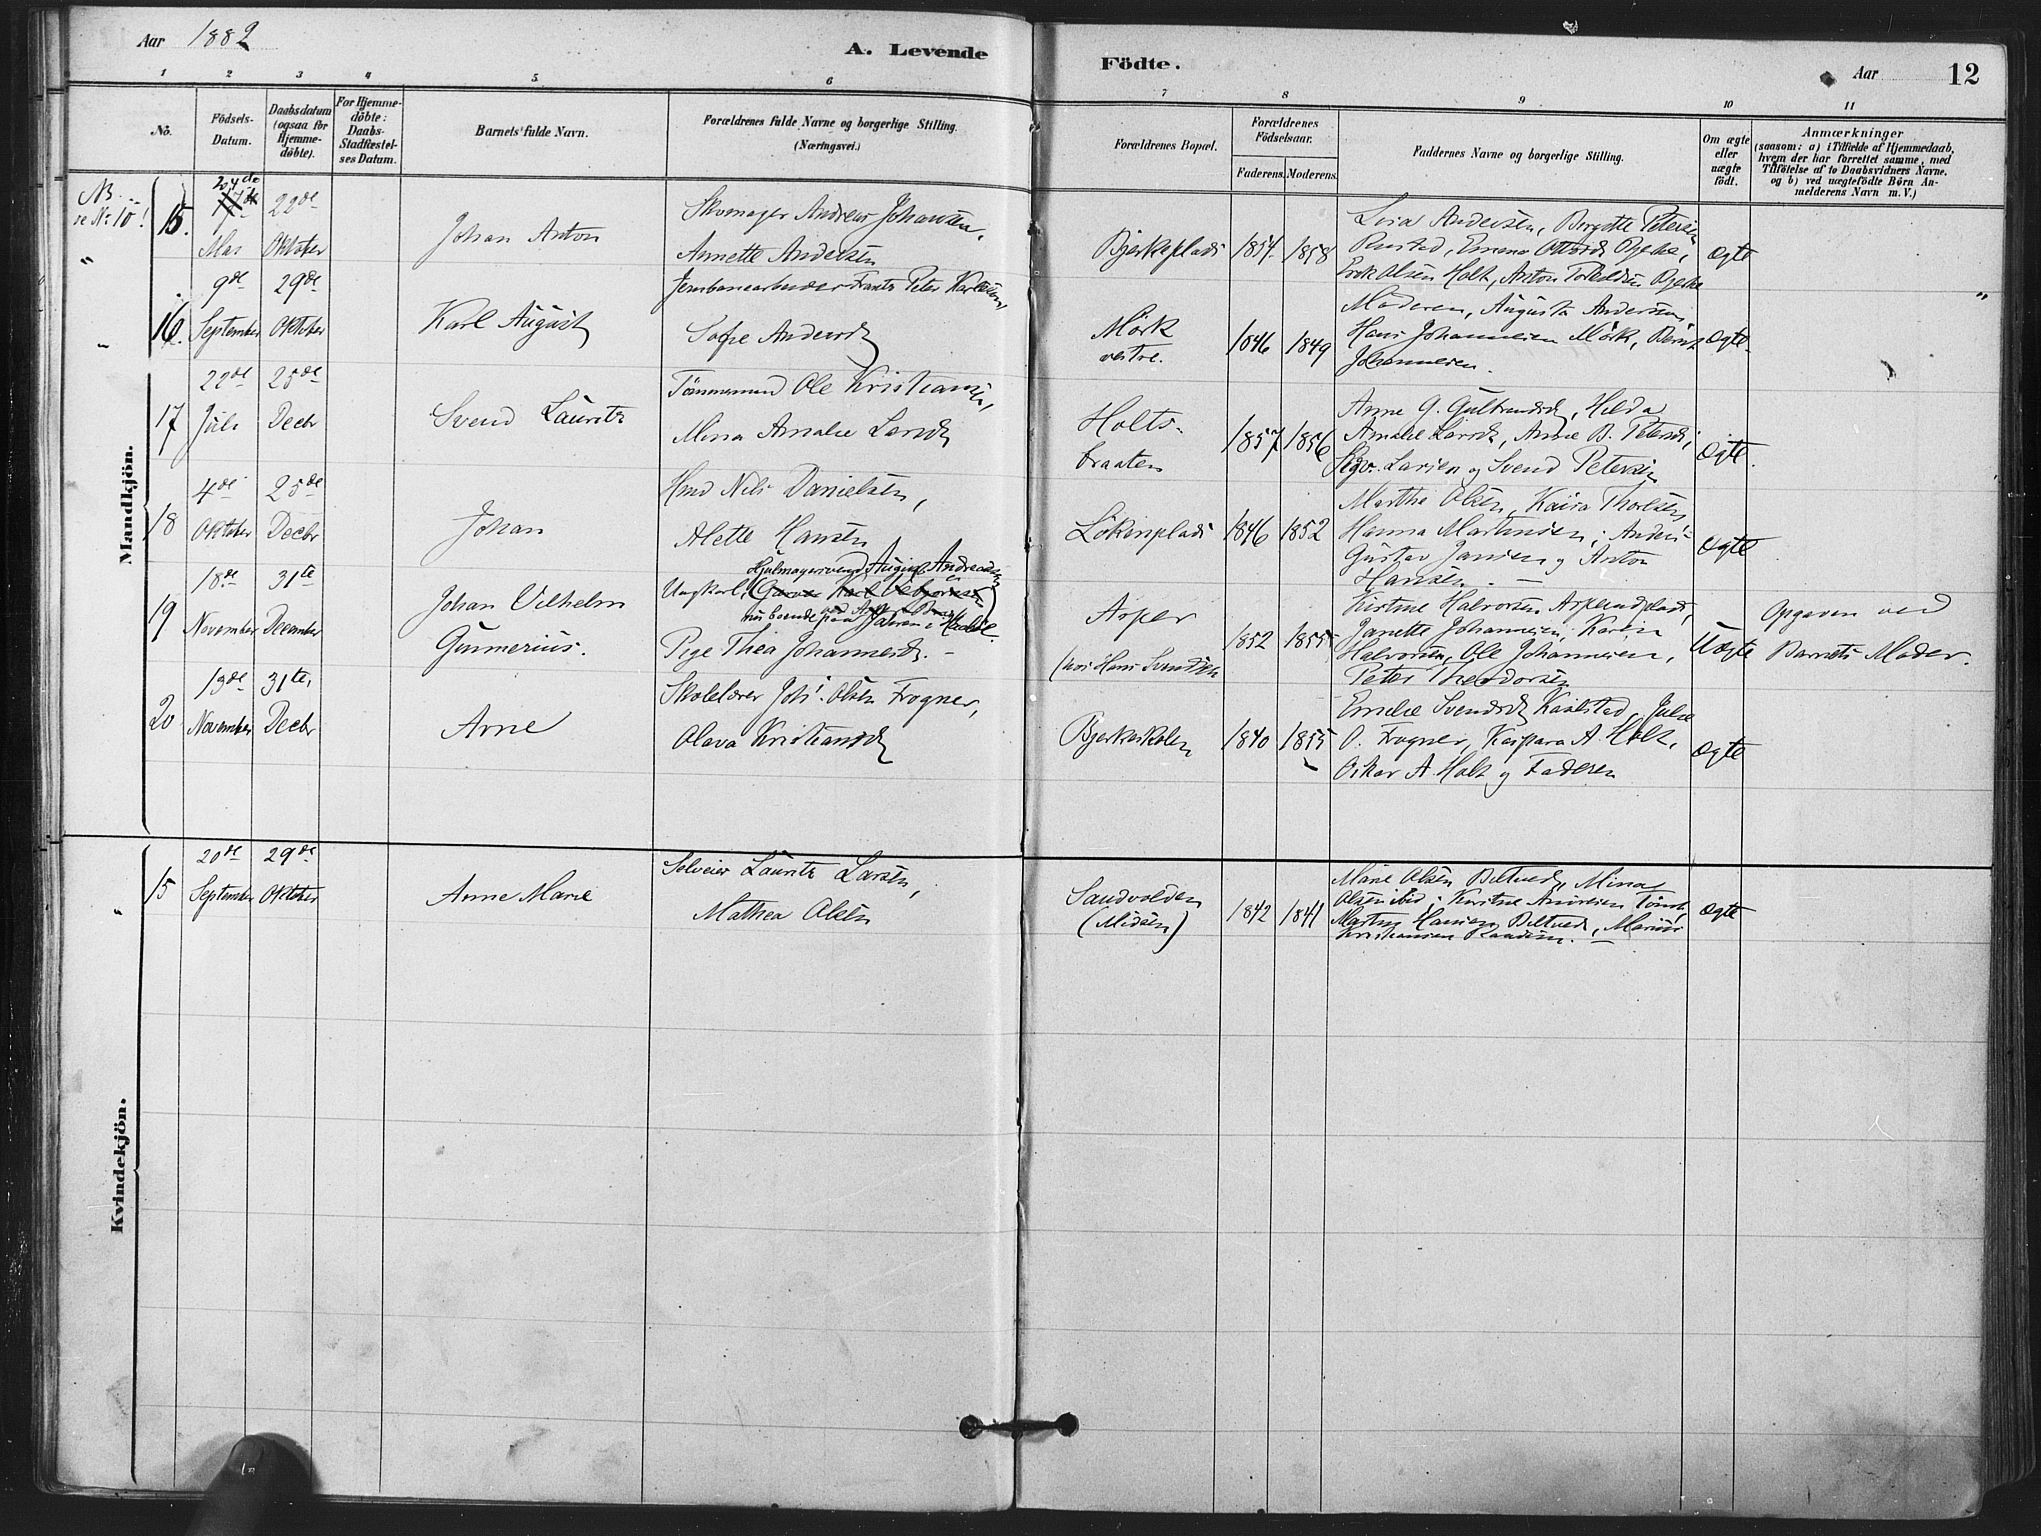 Aar 1882
A. Levende
Födte.
Aar
12
1 2 3 4 5 6 7 8 9 10 11
No.
Födsels-
Datum.
Daabsdatum
(ogsaa for
Hjemme-
döbte).
For Hjemme-
döbte:
Daabs-
Stadfæstel-
ses Datum.
Barnets fulde Navn.
Forældrenes fulde Navne og borgerlige Stilling.
(Næringsvei.)
Forældrenes Bopæl.
Forældrenes
Födselsaar.
Faderens. Moderens.
Faddernes Navne og borgerlige Stilling.
Om ægte
eller
uægte
födt.
Anmærkninger
(saasom: a) i Tilfælde af Hjemmedaab,
hvem der har forrettet samme, med
Tilföielse af to Daabsvidners Navne,
og b) ved uægtefödte Börn An-
melderens Navn m.V.)
Mandkjön.
NB
se No 10!
15.
24de
Mai
22de
Oktober
Johan Anton
Skomager Andreas Johansen,
Annette Andersen
Bjerkeplads
1854
1858
Lina Andersen, Birgitte Petersen
Emma
Erik Olsen Holt, Anton
Ægte
16.
9de
September
29de
Oktober
Karl August
Jernbanearbeider Frants Peter Karlsen,
Sofie Andersd
Mörk
vestre.
1846
1849
Moderen, Augusta Andersen,
Hans Johannesen Mörk, Bernt
Johannesen.
Ægte
17
22de
Juli
25de
Decbr
Svend Lauritz
Tömmermand Ole Kristiansen,
Mina Amalie Larsd
Holts-
braaten
1857
1856
Anne G. Gulbrandsd, Hilda
Amalie Larsd, Anne B. Petersd,
Larsen og Svend Petersen
Ægte.
18
4de
Oktober
25de
Decbr
Johan
Hmd Nils Danielsen,
Alette Hansen
Lökenplads
1846
1852
Marthe Olsen, Kaisa Thorsen,
Hanna Martinsen, Anders
Gustav Jansen og Anton
Hansen. —
Ægte
19
18de
November
31te
December
Johan Vilhelm
Gunnerius.
Hjulmagersvend August Andreasen
Ungkarl,
nu boende paa
Pige Thea Johannesd. —
Asper
(hos Hans Svendsen
1852
1855
Kirstine Halvorsen Asperudplads,
Janette Johannesen, Karen
Halvorsen, Ole Johannesen,
Peter Theodorsen
Uægte
Opgaven ved
Barnets Moder.
20
13de
November
31te,
Decbr
Arne
Skolelærer Johs. Olsen Frogner,
Olava Kristiansd
Bjerkeskolen
1840
1855
Emelie Svendsd Kaalstad, Julie
O. Frogner, Kaspara A. Holt,
Oskar A. Holt og Faderen
Ægte
Kvindekjön.
15
20de
September
29de
Oktober
Anne Marie
Selveier Lauritz Larsen,
Mathea Olsen
Sandvolden
(Midsen)
1842
1841
Marie Olsen Biltved, Mina
Olsen ibid, Kirstine Andresen
Martin Hansen Biltved, Marius
Kristiansen
Ægte